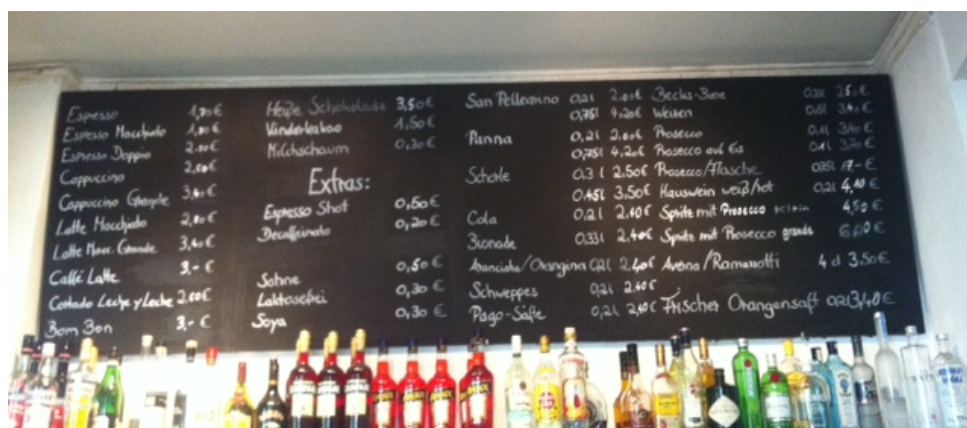 Espresso 1,70€
Espresso Macchiato 1,80€
Espresso Doppio 2.00€
Cappuccino 2,60€
Cappuccino Grande 3,40€
Latte Macchiato 2,80€
Latte Macc. Grande 3,40€
Caffé Latte 3,- €
Cortado Leche y Leche 2.60€
Bom Bon 3,- €
Heiße Schokolade 3,50€
Kinderkakao 1,50€
Milchschaum 0,30€
Extras:
Espresso Shot 0,50€
Decaffeinato 0,20€
Sahne 0,50€
Laktosefrei 0,30€
Soya 0,30€
San Pellegrino 0,2l 2.00€
0,75l 4,20€
Panna 0,2l 2.00€
0,75l 4.20€
Schorle 0,3l 2.50€
0,45l 3,50€
Cola 0,2l 2.40€
Bionade 0,33l 2,40€
Aranciata/Orangina 0,2l 2.40€
Schweppes 0,2l 2.40€
Pago-Säfte 0,2l 2,40€
Becks-Biere 0,33l 2.50€
Weizen 0,5l 3.40€
Prosecco 0,1l 3,40€
Prosecco auf Eis 0,1l 3,20€
Prosecco/Flasche 17,-€
Hauswein weiß/rot 0,2l 4,40€
Spritz mit Prosecco klein 4,50€
Spritz mit Prosecco grande 6.00€
Averna/Ramazzotti 4cl 3.50€
Frischer Orangensaft 0,2l 3,40€